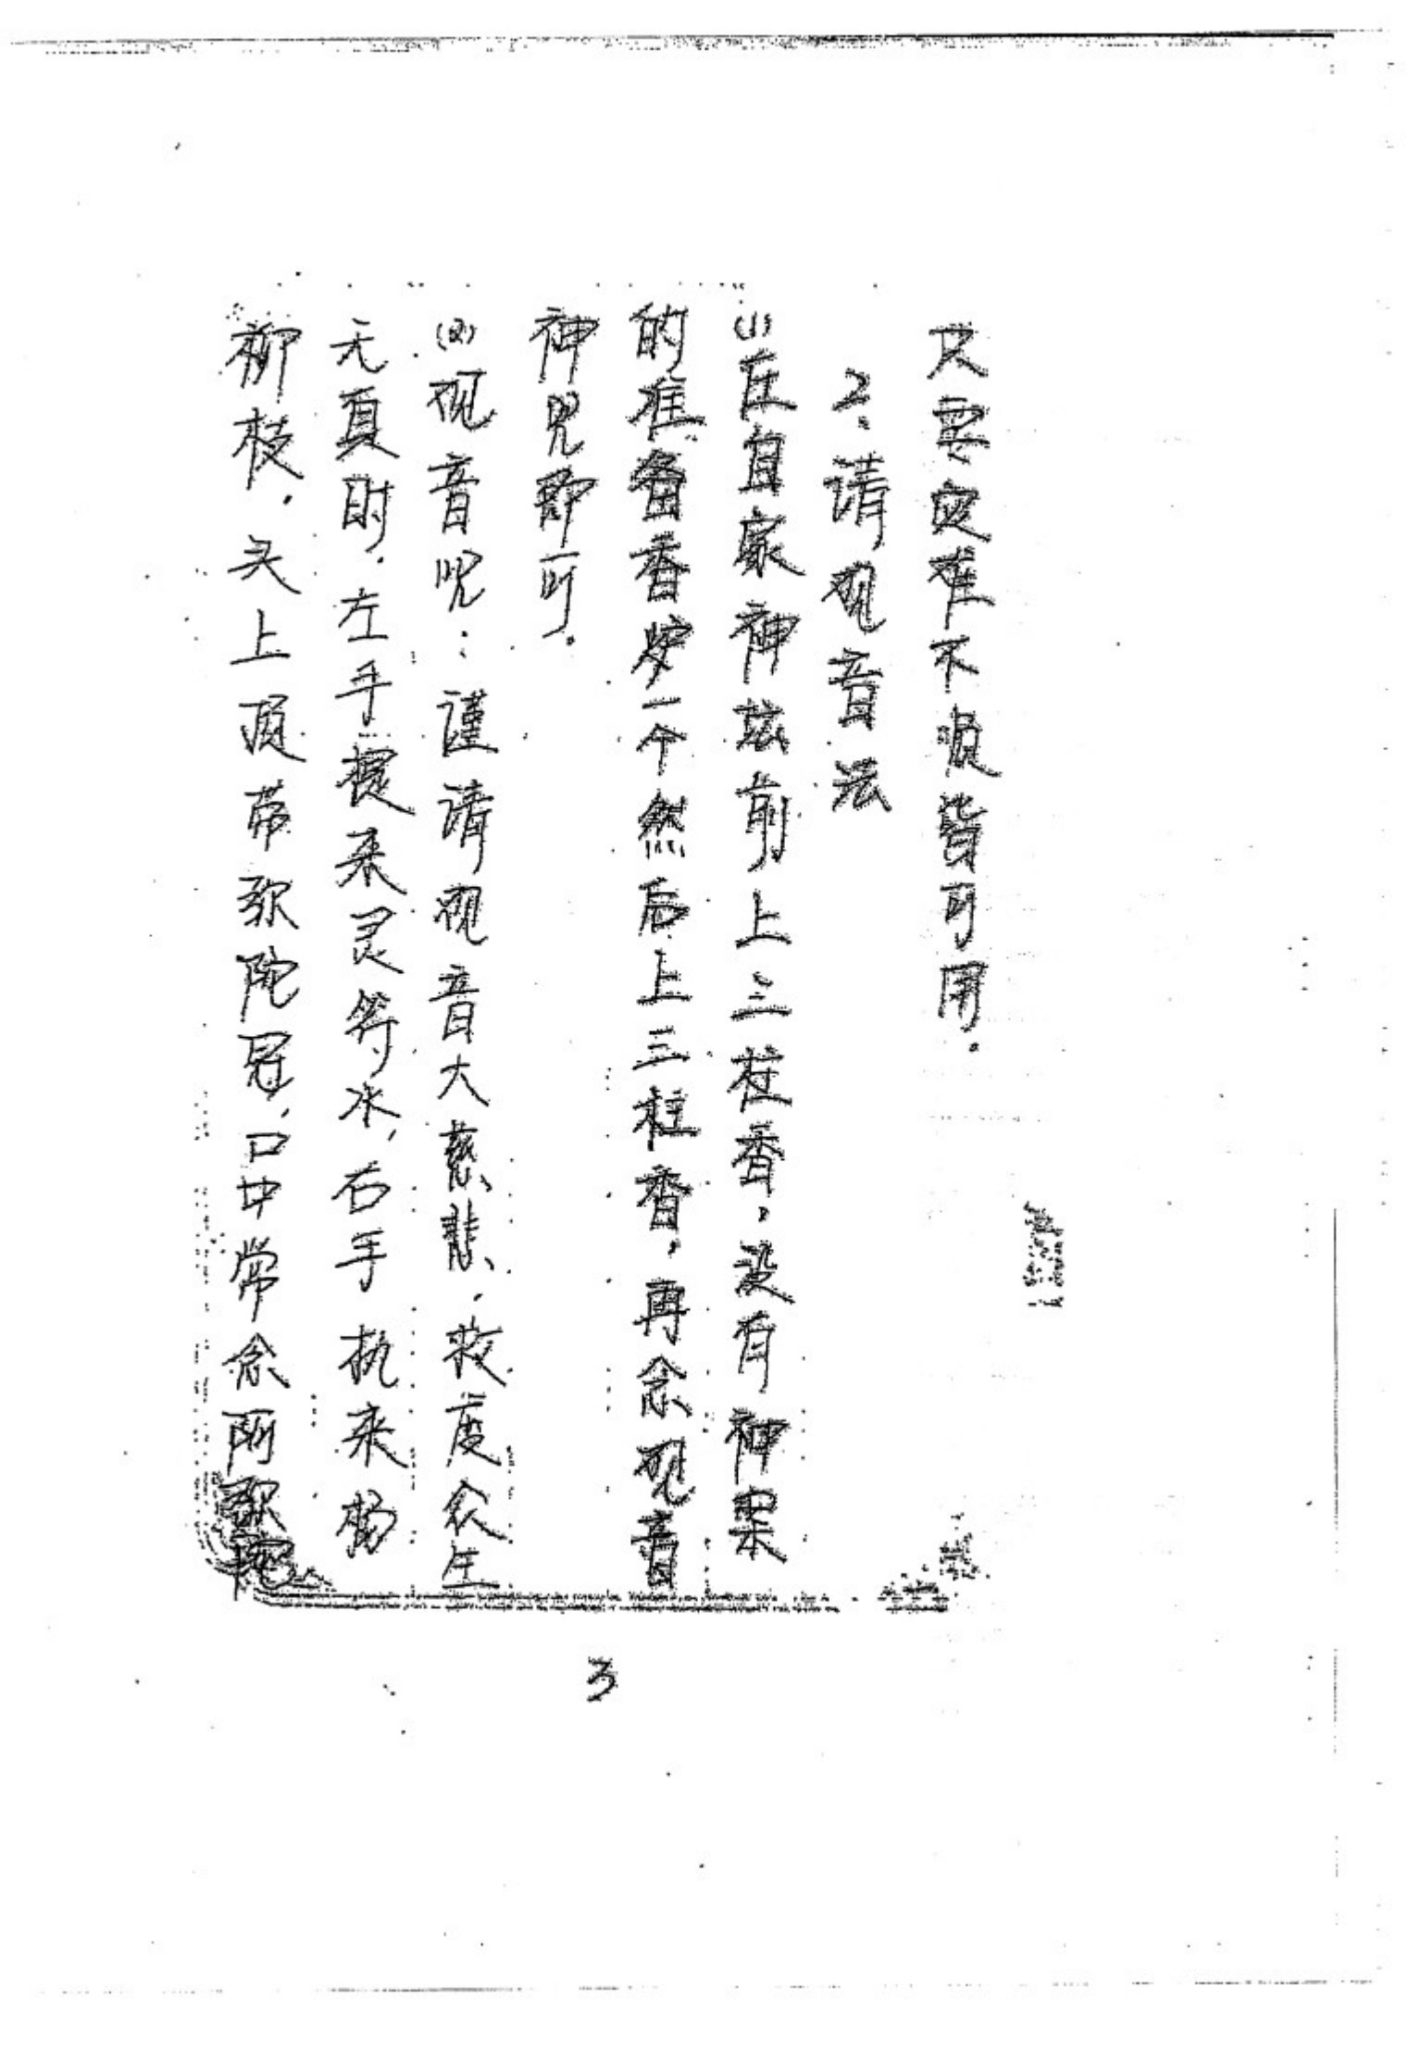 只要灾难不顺皆可用。
2、请观音法
(1)在自家神坛前上三柱香，没有神案
的准备香炉一个然后上三柱香，再念观音
神咒即可。
(2)观音咒：谨请观音大慈悲，救度众生
无夏时，左手提来灵符水，右手执来杨
柳枝，头上顶带弥陀冠，口中常念阿弥陀
3